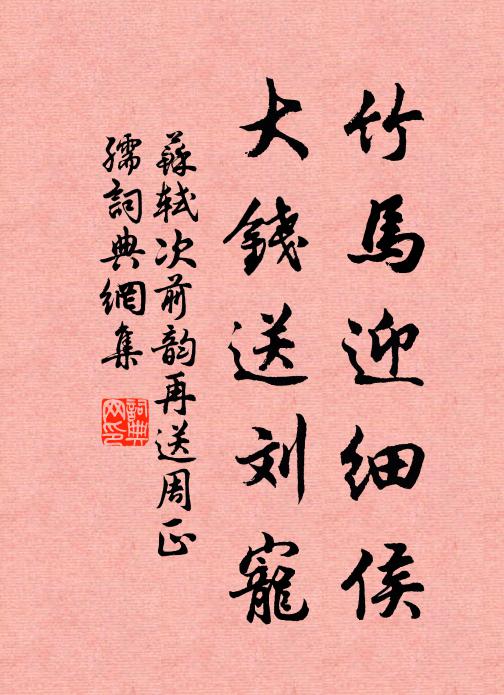 竹馬迎細侯
大錢送刘寵
蘇軾次前韵再送周正
孺詞典網集
詞典
网印